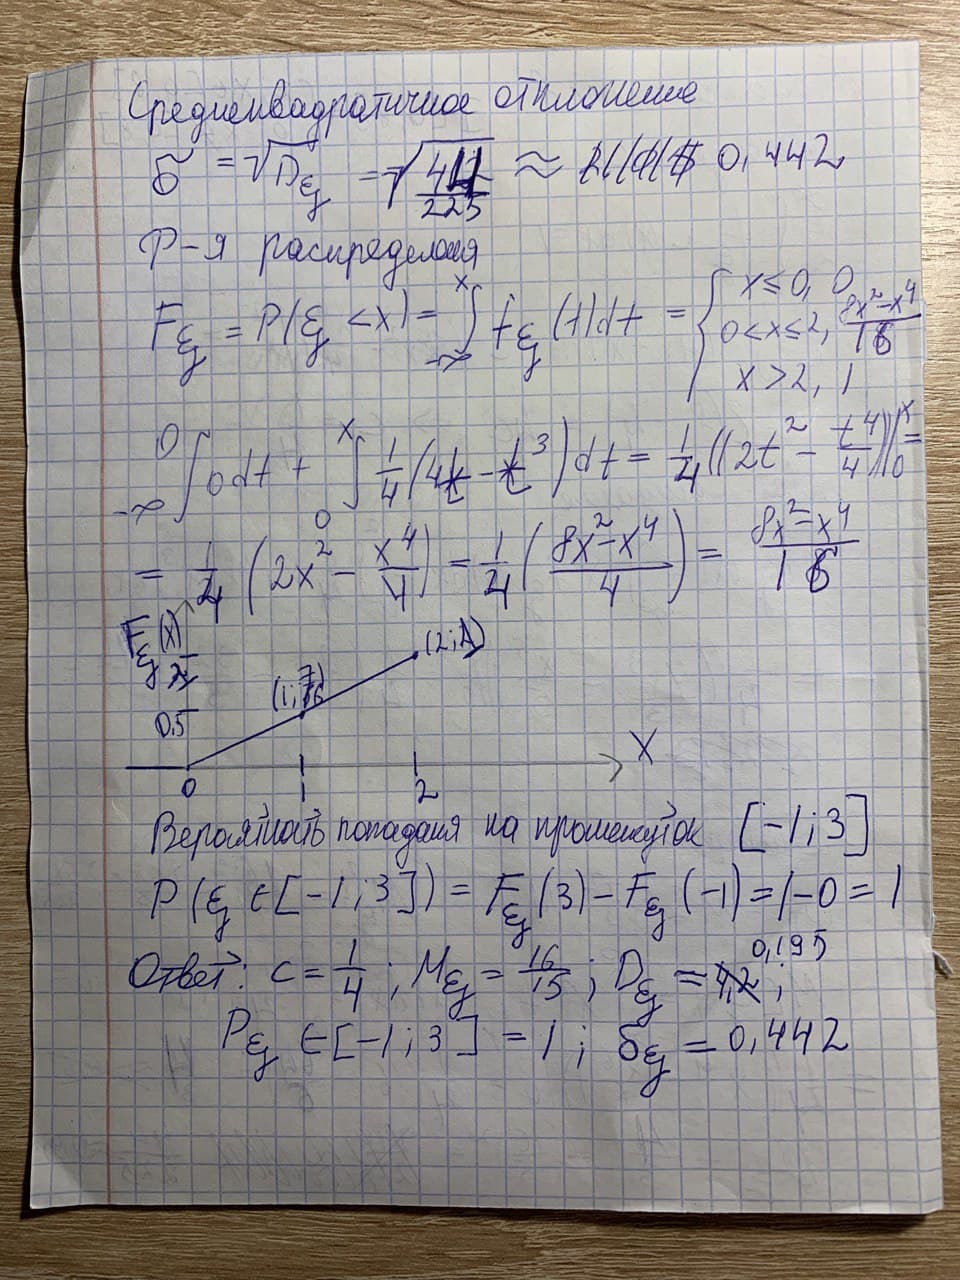 Среднеквадратичное отклонение
σ = √Dξ = √(44/225) ≈ 0,442
Ф-я распределения
Fξ = P(ξ < x) = ∫_{-∞}^{x} fξ(t)dt = { x ≤ 0, 0
0 < x ≤ 2, (8x² - x⁴)/16
x > 2, 1
∫_{-∞}^{0} 0dt + ∫_{0}^{x} 1/4 (4t - t³)dt = 1/4 ((2t² - t⁴/4))|₀ˣ =
= 1/4 (2x² - x⁴/4) = 1/4 ((8x² - x⁴)/4) = (8x² - x⁴)/16
Fξ(x)
(2; 1)
(1; 7/16)
0,5
X
0 1 2
Вероятность попадания на промежуток [-1; 3]
P(ξ ∈ [-1; 3]) = Fξ(3) - Fξ(-1) = 1 - 0 = 1
Ответ: c = 1/4; Mξ = 16/15; Dξ = 0,195;
Pξ ∈ [-1; 3] = 1; σξ = 0,442